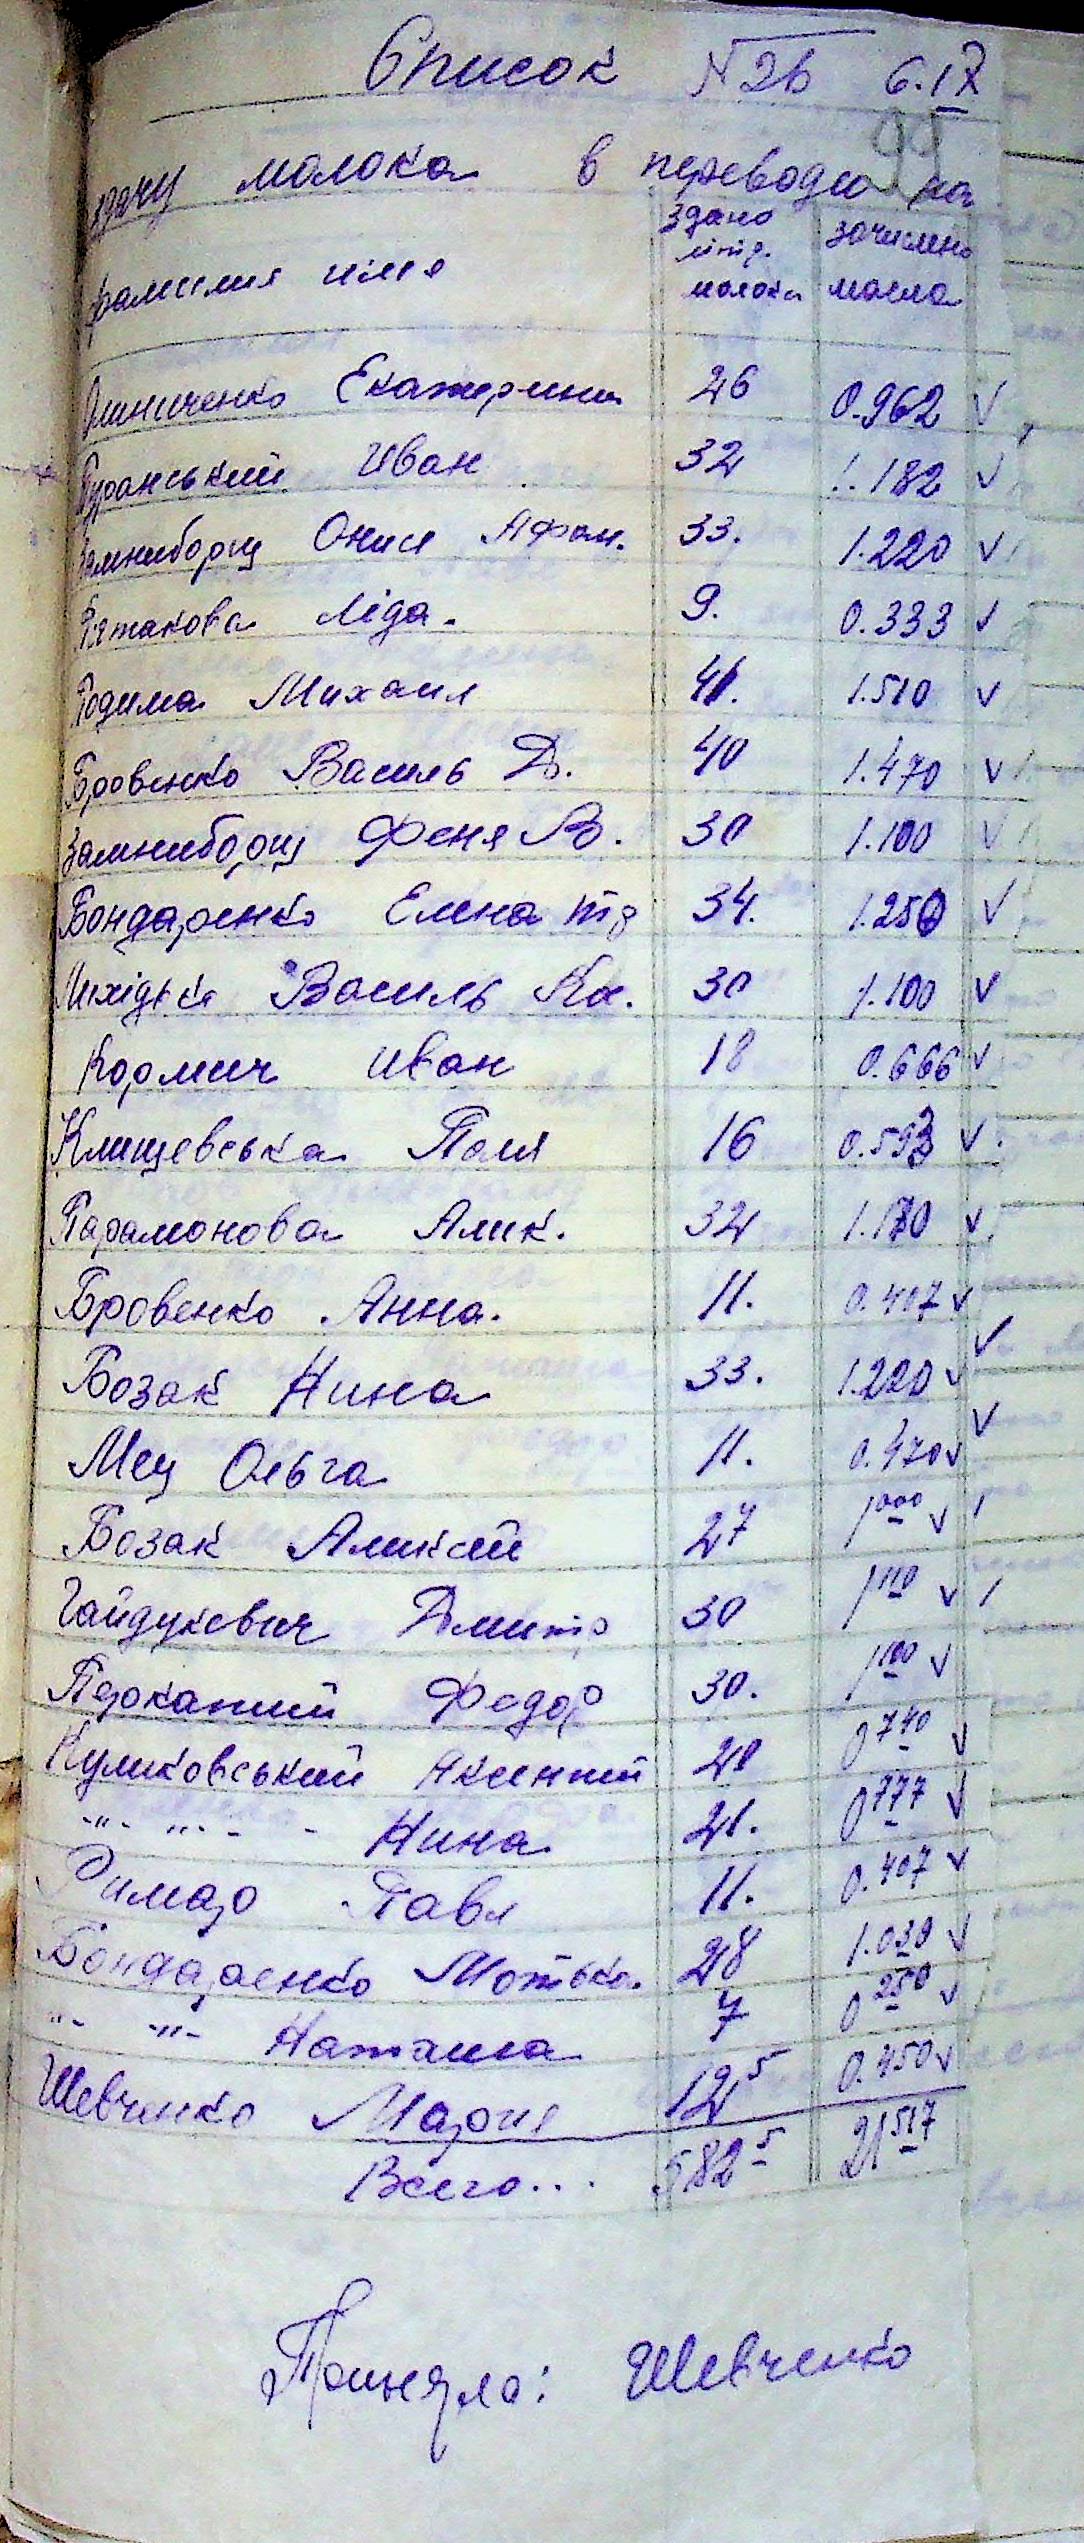 Список №26 6.IX
95
здачу молока в переводе на
фамилия имя здано литр. молока зачислено масла
Олиниченко Екатерина 26 0.962 ✓
Иван 32 1.182 ✓
Замниборщ Онися Афан. 33. 1.220 ✓
Пятакова Ліда. 9. 0.333 ✓
Родима Михаил 41. 1.510 ✓
Бровенко Василь Д. 40 1.470 ✓
Замниборщ Феня В. 30 1.100 ✓
Бондаренко Елена 34. 1.250 ✓
Василь 30 1.100 ✓
Кормич Иван 18 0.666 ✓
Клищевська Поля 16 0.593 ✓
Парамонова Алик. 32 1.170 ✓
Бровенко Анна. 11. 0.407 ✓
Бозак Нина 33. 1.220 ✓
Мец Ольга 11. 0.470 ✓
Бозак Аликсій 27 1000 ✓
Гайдукевич Дмитр 30 1110 ✓
Федор 30. 1100 ✓
Куликовський 20 0740 ✓
-"- -"- - Нина 21. 0777 ✓
Римар Павл 11. 0.407 ✓
Бондаренко Мотька. 28 1.030 ✓
-"- -"- Наташа 7 0250 ✓
Шевченко Мария 12 5 0.450 ✓
Всего... 582 5 21517
Приняла: Шевченко